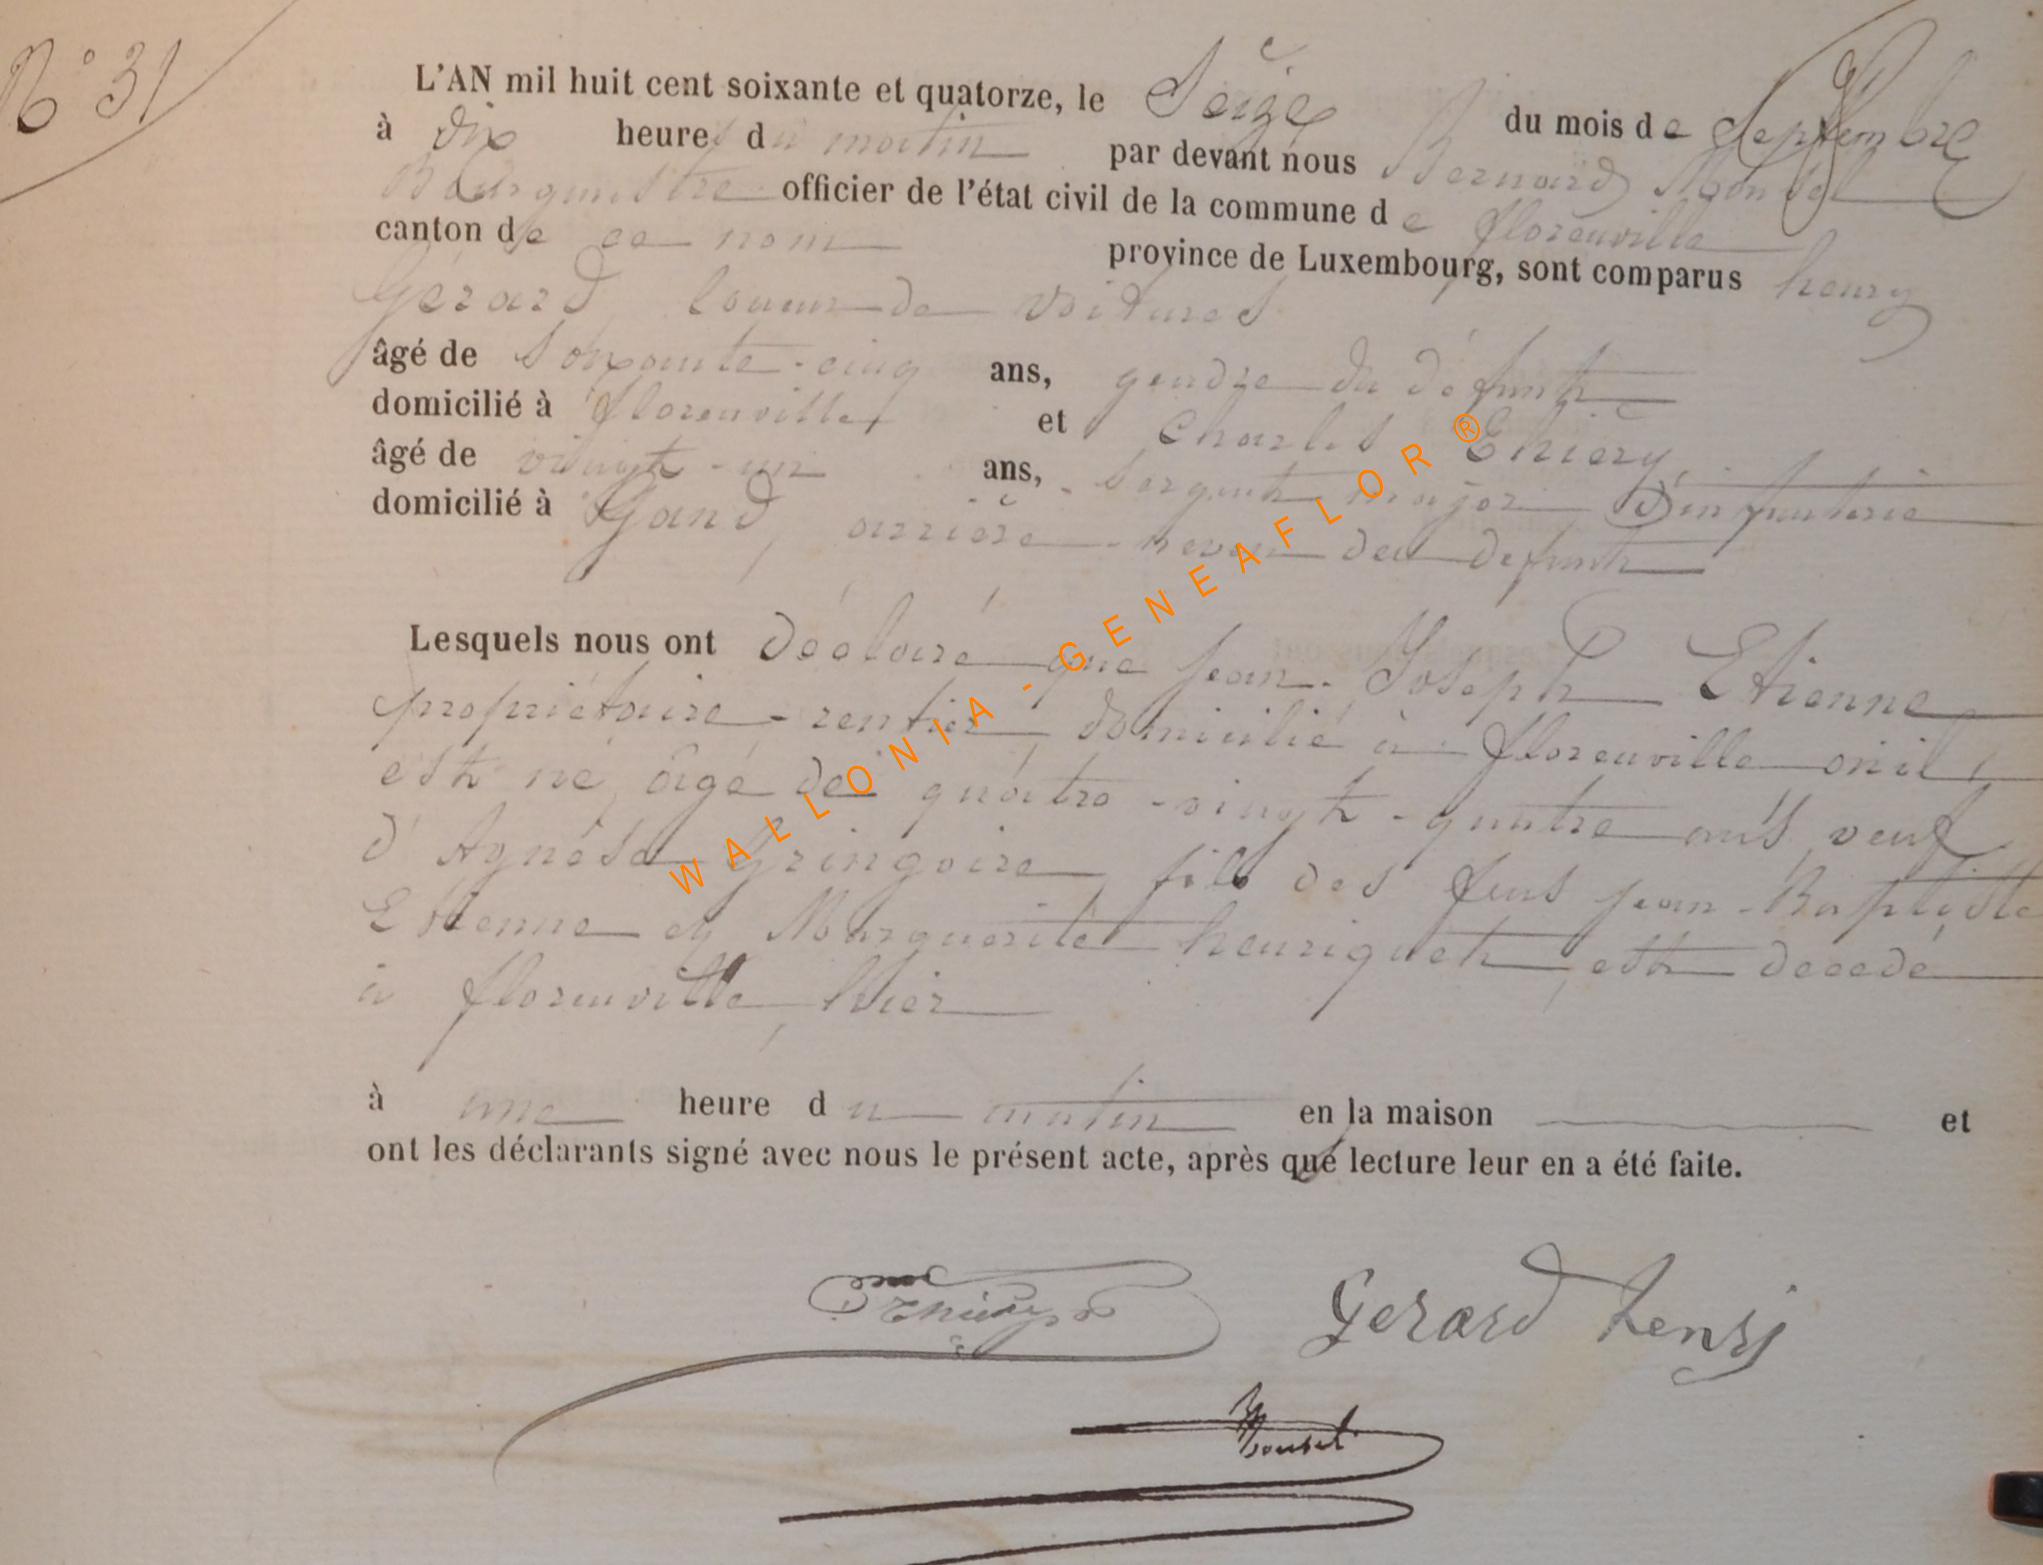 N° 31
L'AN mil huit cent soixante et quatorze, le Seize du mois de Septembre
à dix heures du matin par devant nous Bernard Mousel
Bourgmestre officier de l'état civil de la commune de florenville
canton de ce nom province de Luxembourg, sont comparus henry
Gérard, loueur de voitures
âgé de Soixante-cinq ans, gendre du défunt
domicilié à florenville, et Charles Thiery,
âgé de vingt-un ans, Sergent major d'infanterie
domicilié à Gand, arrière-neveu du défunt
Lesquels nous ont déclaré que Jean-Joseph Etienne
propriétaire-rentier, domicilié à florenville où il
est né, âgé de quatre-vingt-quatre ans, veuf
d'Agnèse Gringoire, fils des feus Jean-Baptiste
Etienne et Marguerite henriquet, est décédé
à florenville, hier
à une heure du matin en la maison et
ont les déclarants signé avec nous le présent acte, après que lecture leur en a été faite.
Thiery Gerard henri
B Mousel
WALLONIA-GENEAFLOR®